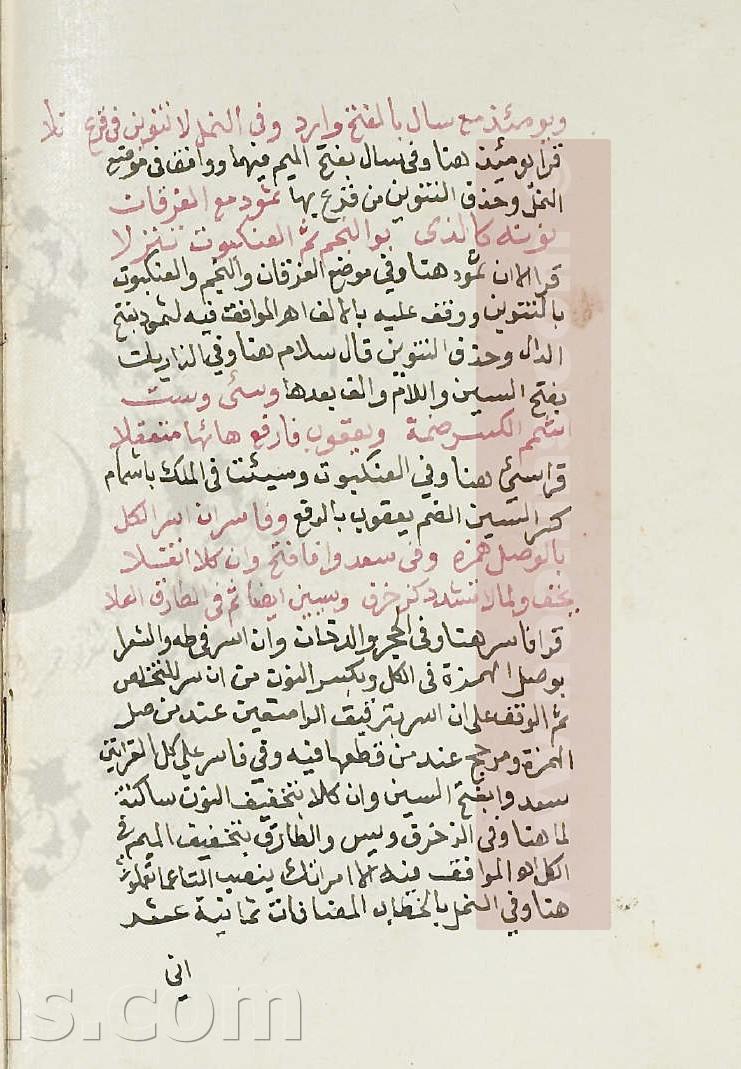 ويومئذ مع سال بالفتح وارد وفي النمل لا تنوين في فزع تلا
قرا يومئذ هنا وفي سال بفتح الميم فيهما ووافقه في موضع
النمل وحذف التنوين من فزع بها ثمود مع الفرقان
نونه كالذي بوالنجم ثم العنكبوت تنزلا
قرا الا ان ثمود هنا وفي موضع الفرقان والنجم والعنكبوت
بالتنوين ووقف عليه بالالف اهر الموافقة فيه لثمود بفتح
الدال وحذف التنوين قال سلام هنا وفي الذاريات
بفتح السين واللام والف بعدها وسئ وسئت
اشمم الكسر ضمة ويعقوب فارفع هائها متعقلا
قرا سيئ هنا وفي العنكبوت وسيئت في الملك باشمام
كسر السين الضم يعقوب بالرفع وفاسران اسر الكل
بالوصل همزه وفي سعدوا فافتح وان كلا انقلا
بخف ولما لا تشدد كزخرف ويسين ايضا ثم في الطارق العلا
قرا فاسر هنا وفي الحجر والدخان وان اسر في طه والشعرا
بوصل الهمزة في الكل وبكسر النون من ان اسر للتخلص
ثم الوقف على ان اسر بترقيق الراء متعين عند من وصل
الهمزة ومرجح عند من قطعها فيه وفي فاسر على كل القراتين
سعدوا بفتح السين وان كلا بتخفيف النون ساكنة
لما هنا وفي الزخرف ويس والطارق بتخفيف الميم في
الكل اهر الموافقة فيه الا امراتك بنصب التا عما تعملون
هنا وفي النمل بالخطاب المضافات ثمانية عشر
اني
ns.com